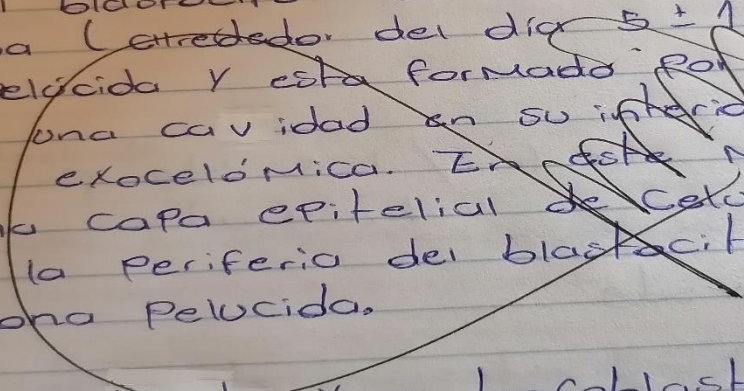 a (alrededor del día 5 ± 1
elúcida y esta formado por
una cavidad en su interio
exocelómica. En este
la capa epitelial de celu
la periferia del blastocit
ona pelucida.